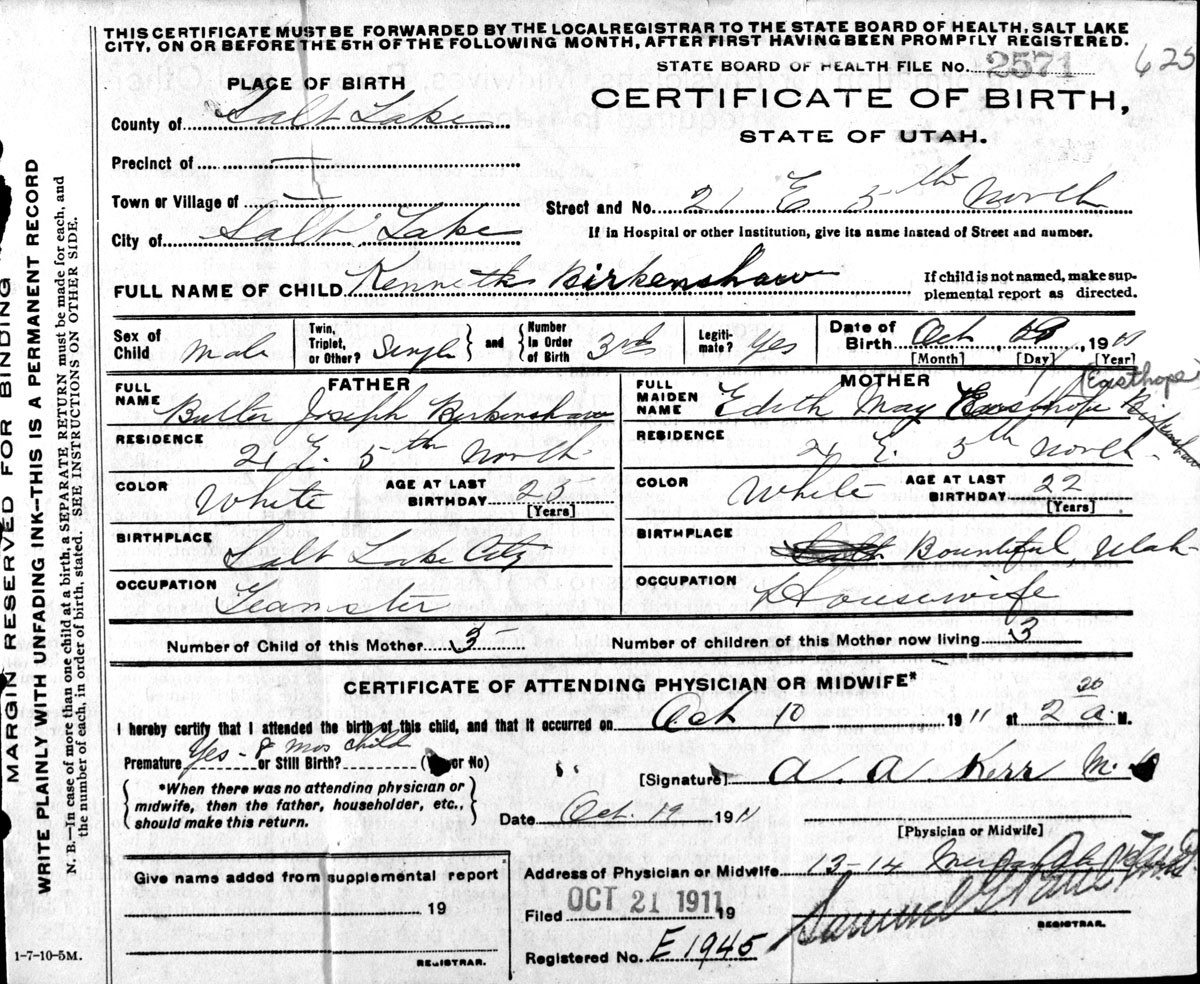 THIS CERTIFICATE MUST BE FORWARDED BY THE LOCAL REGISTRAR TO THE STATE BOARD OF HEALTH, SALT LAKE
CITY, ON OR BEFORE THE 5TH OF THE FOLLOWING MONTH, AFTER FIRST HAVING BEEN PROMPTLY REGISTERED.
STATE BOARD OF HEALTH FILE No. 2571 625
PLACE OF BIRTH
CERTIFICATE OF BIRTH,
STATE OF UTAH.
County of Salt Lake
Precinct of —
Town or Village of —
Street and No. 21 E 5th North
City of Salt Lake
If in Hospital or other Institution, give its name instead of Street and number.
FULL NAME OF CHILD Kenneth Birkenshaw
If child is not named, make sup-
plemental report as directed.
Sex of Child Male
Twin, Triplet, or Other? Single
and
Number in Order of Birth 3rd
Legiti-mate? Yes
Date of Birth Oct 1911
[Month] [Day] [Year]
FATHER
FULL NAME Butler Joseph Birkenshaw
RESIDENCE
21 E. 5th North
COLOR White AGE AT LAST BIRTHDAY
[Years]
BIRTHPLACE
Salt Lake City
OCCUPATION
Teamster
MOTHER
(Easthope)
FULL MAIDEN NAME Edith May Easthope Birkenshaw
RESIDENCE
21 E. 5th North
COLOR White AGE AT LAST BIRTHDAY 22
[Years]
BIRTHPLACE
Bountiful, Utah
OCCUPATION
Housewife
Number of Child of this Mother 3
Number of children of this Mother now living 3
CERTIFICATE OF ATTENDING PHYSICIAN OR MIDWIFE*
I hereby certify that I attended the birth of this child, and that it occurred on Oct 10 1911 at 2 20 a. M.
Premature Yes - 8 mos child or Still Birth? ( or No)
*When there was no attending physician or
midwife, then the father, householder, etc.,
should make this return.
[Signature] A. A. Kerr M.
Date Oct. 19 1911
[Physician or Midwife]
Give name added from supplemental report
19
REGISTRAR.
Address of Physician or Midwife 13-14
Filed OCT 21 1911 19
Samuel
REGISTRAR.
Registered No. E 1945
1-7-10-5M.
MARGIN RESERVED FOR BINDING
WRITE PLAINLY WITH UNFADING INK—THIS IS A PERMANENT RECORD
N. B.—In case of more than one child at a birth, a SEPARATE RETURN must be made for each, and
the number of each, in order of birth, stated. SEE INSTRUCTIONS ON OTHER SIDE.